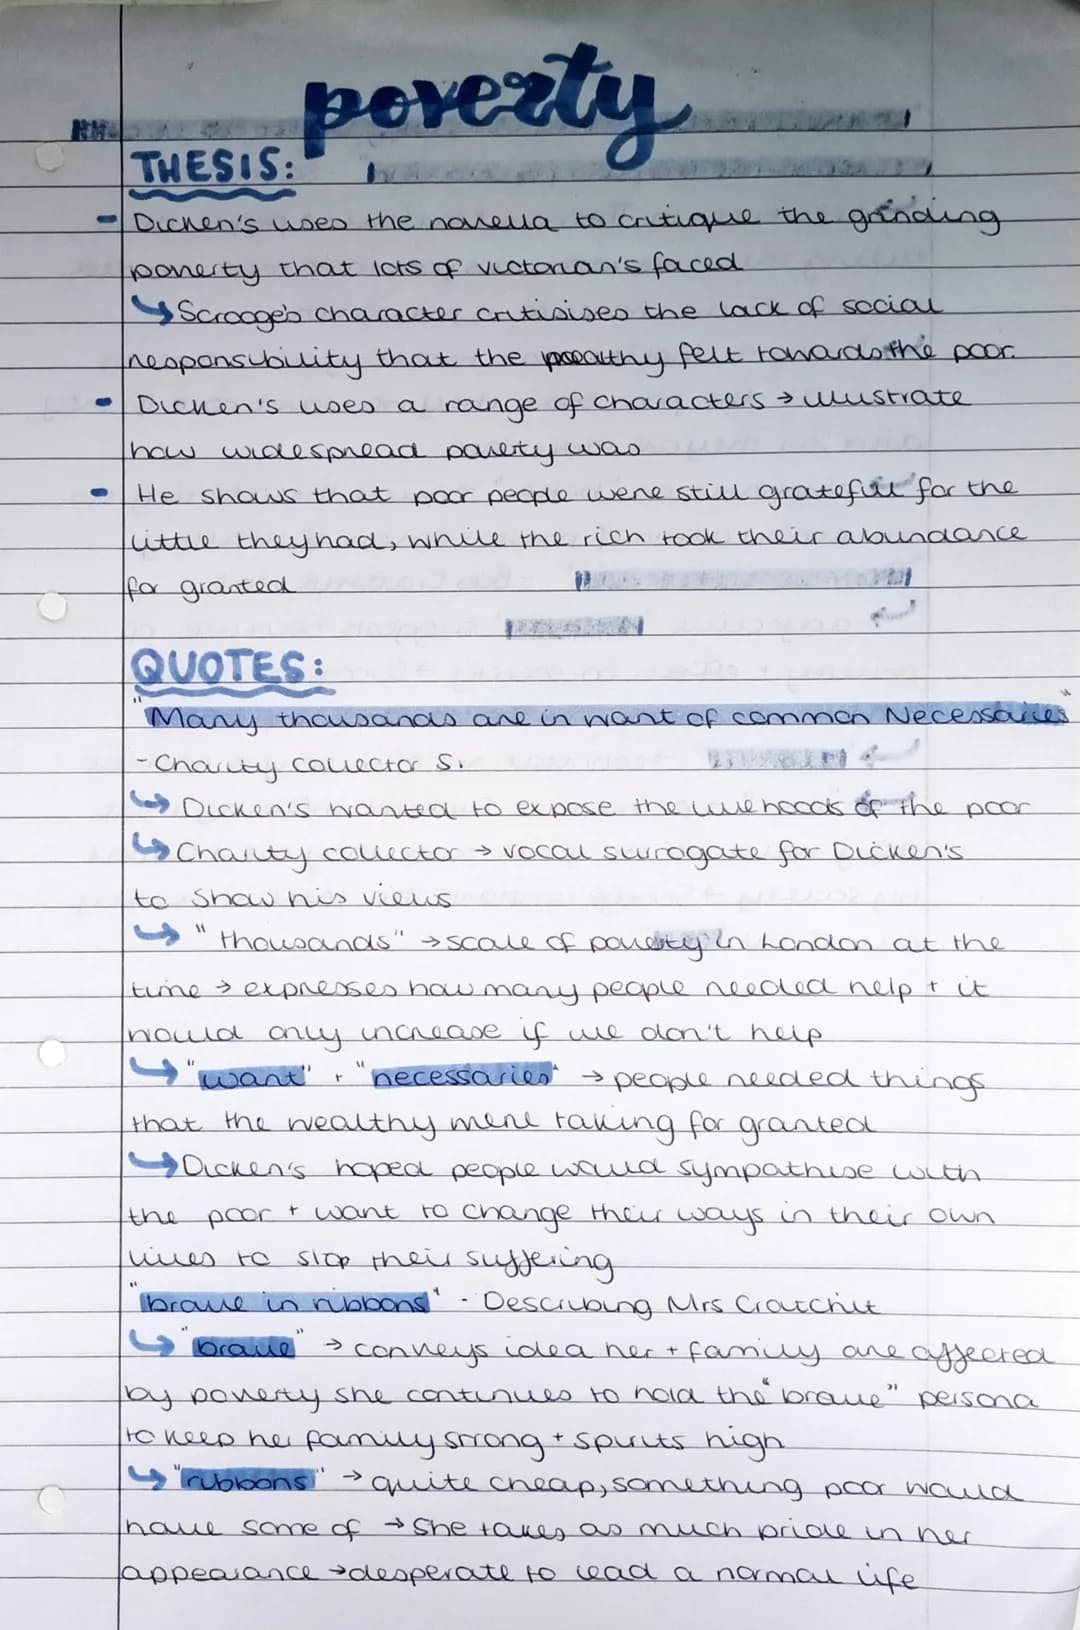 poverty
THESIS:
- Dicken's uses the novella to critique the grinding
poverty that lots of victorian's faced
↳ Scrooge's character critisises the lack of social
responsibility that the wealthy felt towards the poor.
- Dicken's uses a range of characters → illustrate
how widespread poverty was
- He shows that poor people were still grateful for the
little they had, while the rich took their abundance
for granted
QUOTES:
"Many thousands are in want of common Necessaries"
- Charity collector S.
↳ Dicken's wanted to expose the livelihoods of the poor
↳ Charity collector → vocal surrogate for Dicken's
to show his views
↳ "thousands" → scale of poverty in London at the
time → expresses how many people needed help + it
would only increase if we don't help
↳ "want" + "necessaries" → people needed things
that the wealthy were taking for granted
↳ Dicken's hoped people would sympathise with
the poor + want to change their ways in their own
lives to stop their suffering
"brave in ribbons" - Describing Mrs Cratchit
↳ "brave" → conveys idea her + family are affected
by poverty she continues to hold the "brave" persona
to keep her family strong + spirits high
↳ "ribbons" → quite cheap, something poor would
have some of → She takes as much pride in her
appearance → desperate to lead a normal life